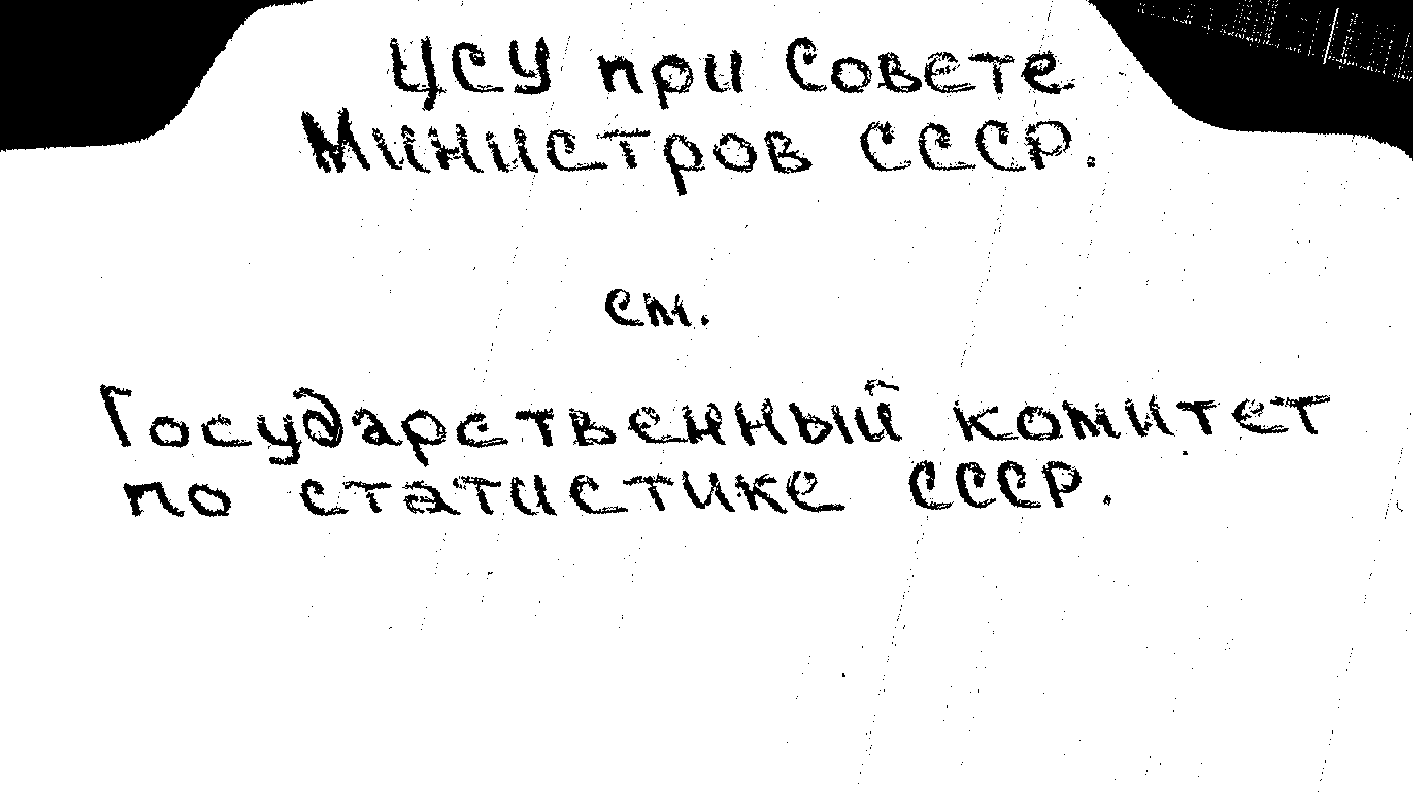 ЦСУ при Совете
Министров СССР.
см.
Государственный комитет
по статистике СССР.